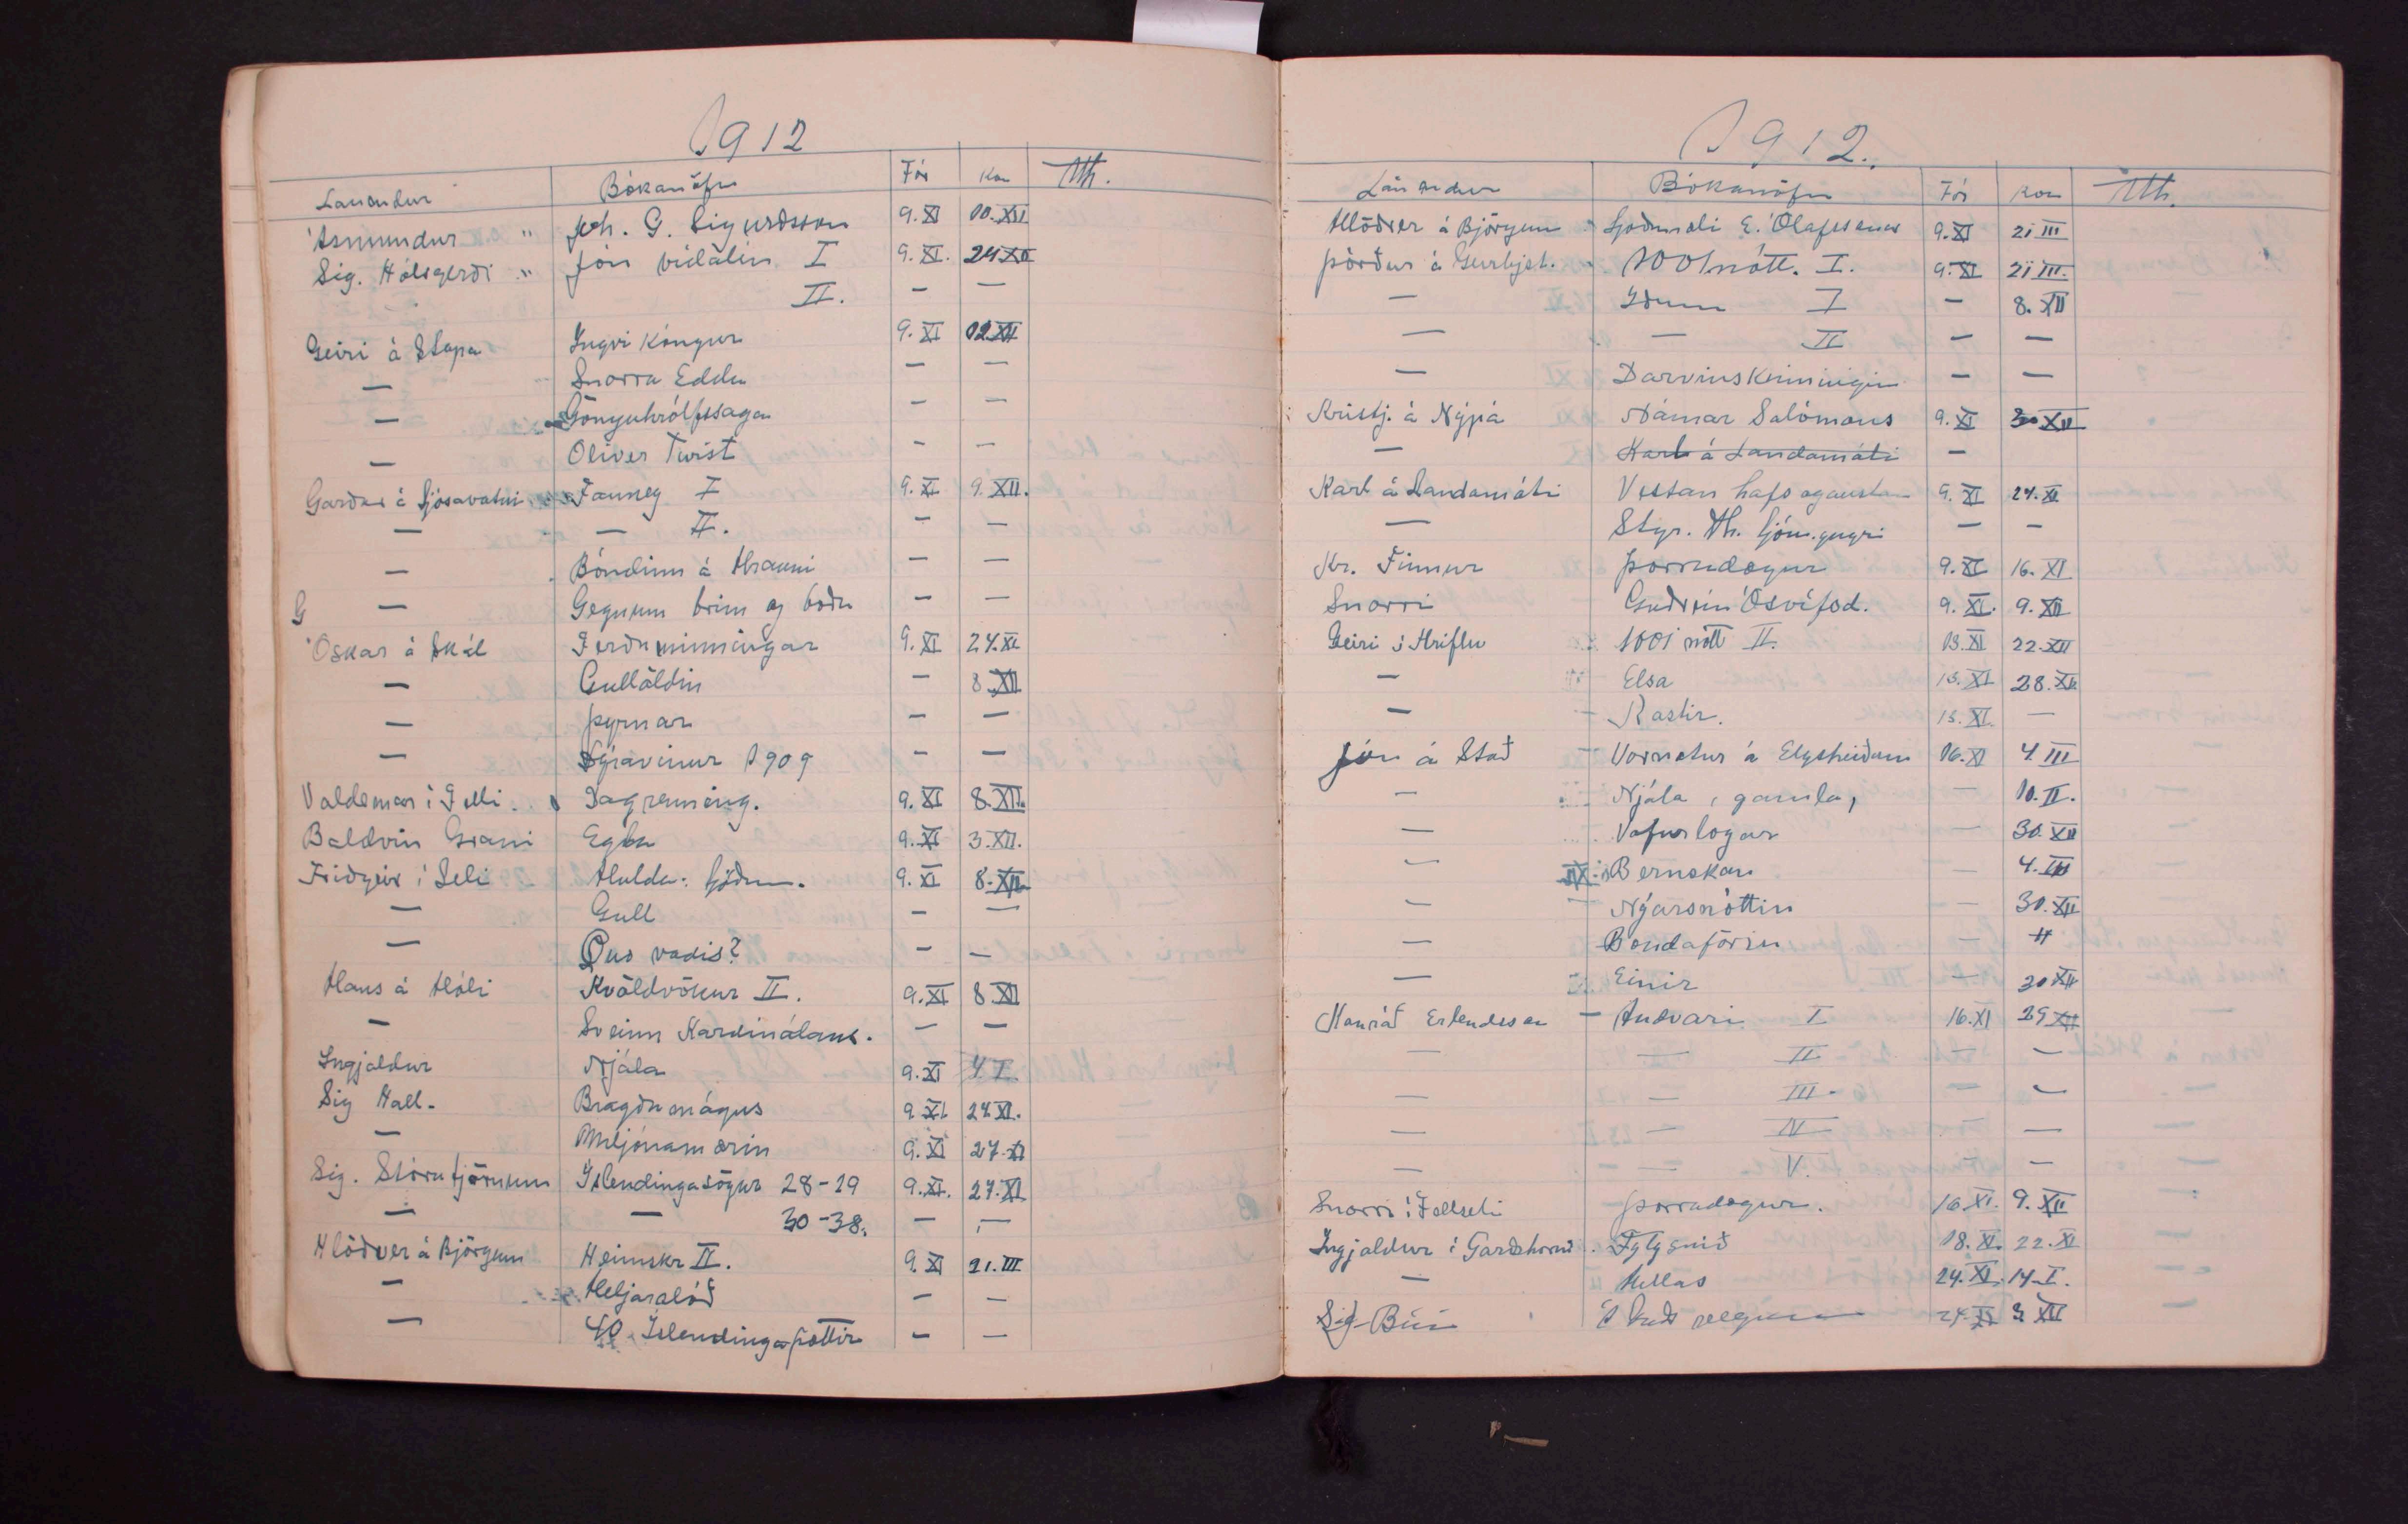 1912
Lánendur Bókanöfn Fór Kom Ath.
Ásmundur " Joh. G. Sigurðsson 9.XI 10.XII
Sig. Hólsgerði " Jón vídalín I 9.XI. 24.XII
II. — —
Geiri á Stapa Yngvi kóngur 9.XI 12.XII
— Snorra Edda — —
— Gönguhrólfssaga — —
— Oliver Twist — —
Garðar á Ljósavatni Fanney I 9.XI. 9.XII.
— — II. — —
— Bóndinn á Hrauni — —
G — Gegnum brim og boða — —
Óskar á Skál Ferðaminningar 9.XI 24.XI
— Gullöldin — 8.XII
— Þyrnar — —
— Dýravinur 1909 — —
Valdemar í Felli. Dagrenning. 9.XI 8.XII.
Baldvin Grani Egla 9.XI 3.XII.
Friðgeir í Seli Hulda: ljóðm. 9.XI 8.XII
— Gull — —
— Quo vadis? — —
Hans á Hóli Kvöldvökur II. 9.XI 8 XII
— Sveinn Kardínálans. — —
Ingjaldur Njála 9.XI 4.I.
Sig Hall. Bragðamágus 9.XI. 24.XI.
— Miljónamærin 9.XI 27.XI
Sig. Stórutjörnum Íslendingasögur 28-29 9.XI. 27.XI
— — 30-38. — —
Hlöðver á Björgum Heimskr II. 9.XI 21.III
— Heljarslóð — —
— 40 Íslendingaþættir — —
1912.
Lánendur Bókanöfn Fór Kom Ath.
Hlöðver á Björgum Ljóðmæli E. Ólafssonar 9.XI 21 III
Þórður á 1001 nótt. I. 9.XI 21 III.
— Iðunn I — 8. XII
— — II — —
— Darvinskenningin — —
Kristj. á Nýpá Námar Salómons 9.XI 30 XII
— Karl á Landamóti —
Karl á Landamóti Vestan hafs og austan 9.XI 24.XI
— Styr. Th. — —
Kr. Finnur Þorradægur 9.XI 16. XI
Snorri Guðrún Ósvífsd. 9.XI. 9.XII
Geiri í Hriflu 1001 nótt II. 13.XI 22.XII
— Elsa 13.XI 28.XII
— Rastir. 13.XI. —
Jón á Stað Vornætur á Elgsheiðum 16.XI 4 III
— Njála, gamla, — 10.II.
— Vafurlogar — 30.XII
— Bernskan — 4.III
— Nýársnóttin — 30.XII
— Bóndaförin — "
— Einir — 30 XII
Konráð Erlendsson — Andvari I 16.XI 29 XII
— — II — —
— — III — —
— — IV — —
— — V. — —
Snorri í Fellseli Þorradægur. 16.XI. 9.XII
Ingjaldur í Garðshorni Fylgsnið 18.XI. 22.XI
— Hellas 24.XI. 14.I.
Sig Búi 24.XI 3 XII